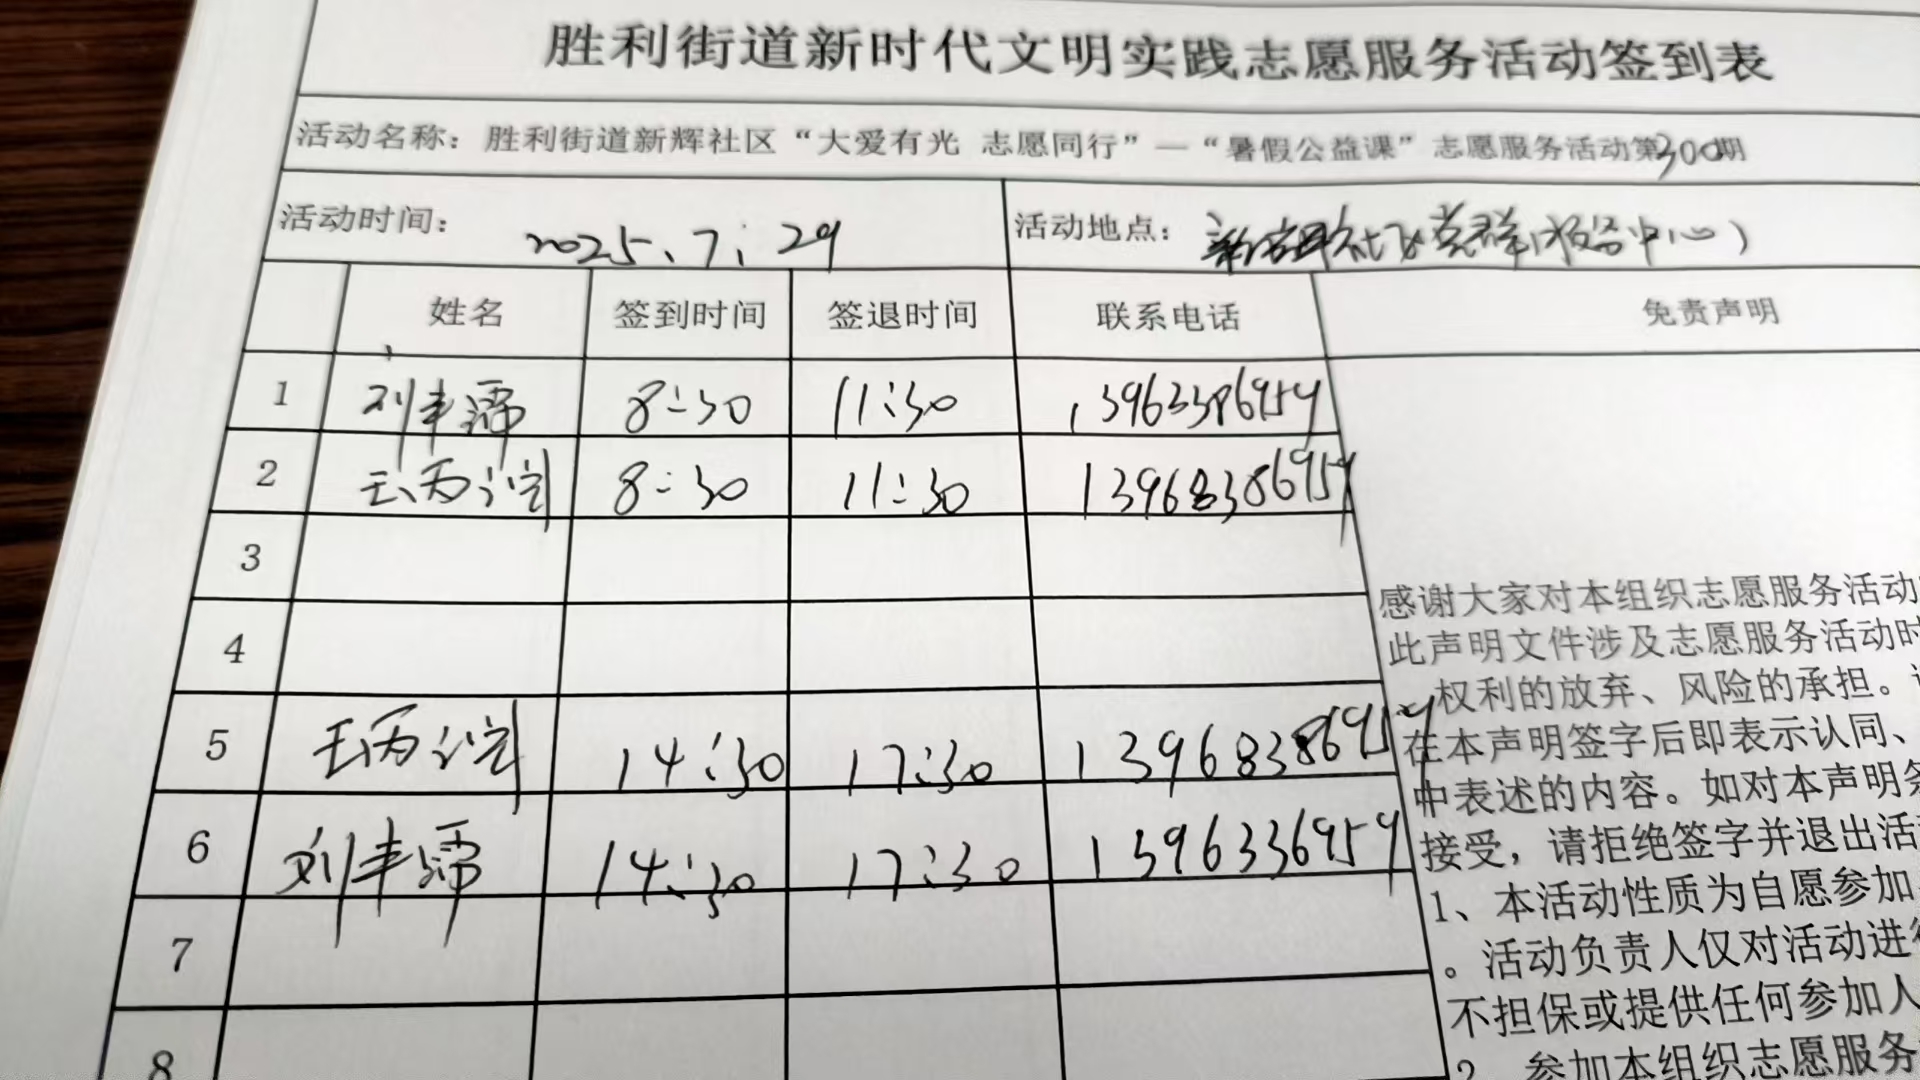 胜利街道新时代文明实践志愿服务活动签到表
活动名称：胜利街道新辉社区“大爱有光 志愿同行”—“暑假公益课”志愿服务活动第300期
活动时间： 2025.7.29 活动地点： 党群服务中心
姓名 签到时间 签退时间 联系电话 免责声明
1 刘丰霈 8:30 11:30
2 王丙 8:30 11:30 13968386959
3
4
5 王丙 14:30 17:30 13968386959
6 刘丰霈 14:30 17:30 1396336959
7
8
感谢大家对本组织志愿服务活动
此声明文件涉及志愿服务活动时
权利的放弃、风险的承担。
在本声明签字后即表示认同、
中表述的内容。如对本声明条
接受，请拒绝签字并退出活
1、本活动性质为自愿参加
。活动负责人仅对活动进行
不担保或提供任何参加人
2、参加本组织志愿服务